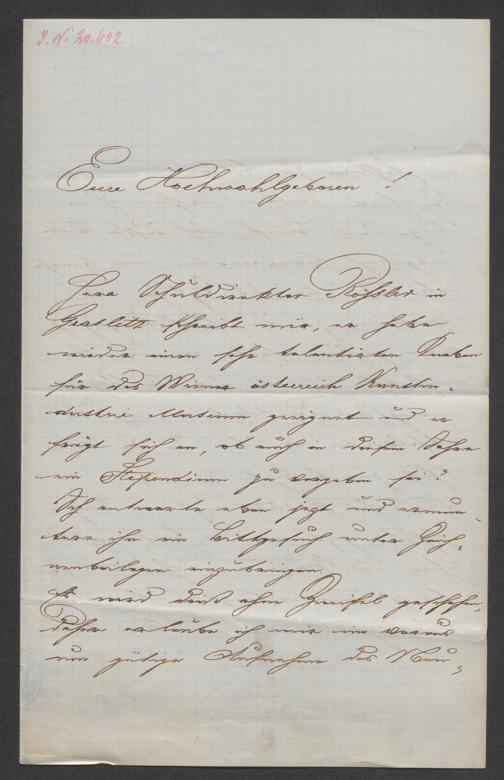 J. N. 20.602
Eure Hochwohlgeboren !
Herr Schuldirektor Rößler in
Graslitz schreibt mir, er habe
wieder einen sehr talentirten Knaben
für das Wiener österreich Kunstin-
dustrie Museum geeignet und er
frägt sich an, ob auch in diesem Jahre
ein Stipendium zu vergeben sei?
Ich antworte eben jezt und ermun-
tere ihn ein Bittgesuch unter Zeich-
nenbeilagen einzubringen.
Es wird dieß ohne Zweifel geschehen,
daher erlaube ich mir im voraus
um gütige Aufnahme des